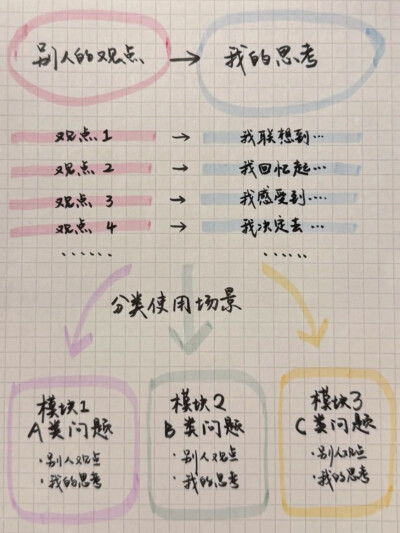 别人的观点 → 我的思考
观点1 → 我联想到…
观点2 → 我回忆起…
观点3 → 我感受到…
观点4 → 我决定去…
…… ……
分类使用场景
模块1
A类问题
·别人观点
·我的思考
模块2
B类问题
·别人观点
·我的思考
模块3
C类问题
·别人观点
·我的思考